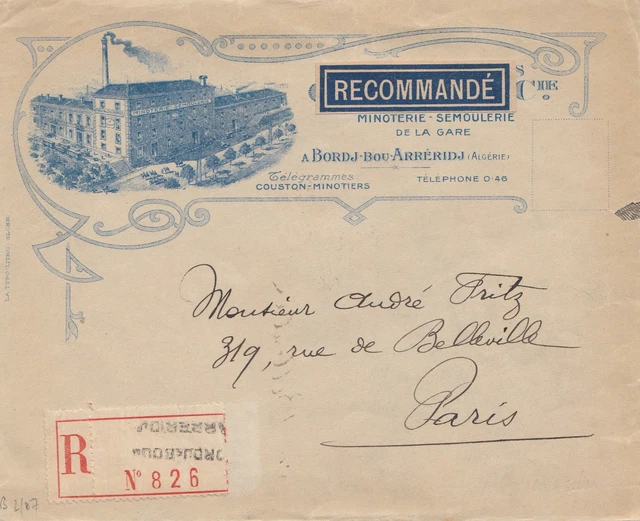 S
RECOMMANDÉ
CIE.
MINOTERIE - SEMOULERIE
DE LA GARE
MINOTERIE SEMOULERIE
A BORDJ-BOU-ARRÉRIDJ (ALGÉRIE)
Télégrammes
COUSTON-MINOTIERS
TÉLÉPHONE 0-46
Monsieur André Fritz
319, rue de Belleville
Paris
R
BORDJ-BOU
ARRERIDJ
N° 826